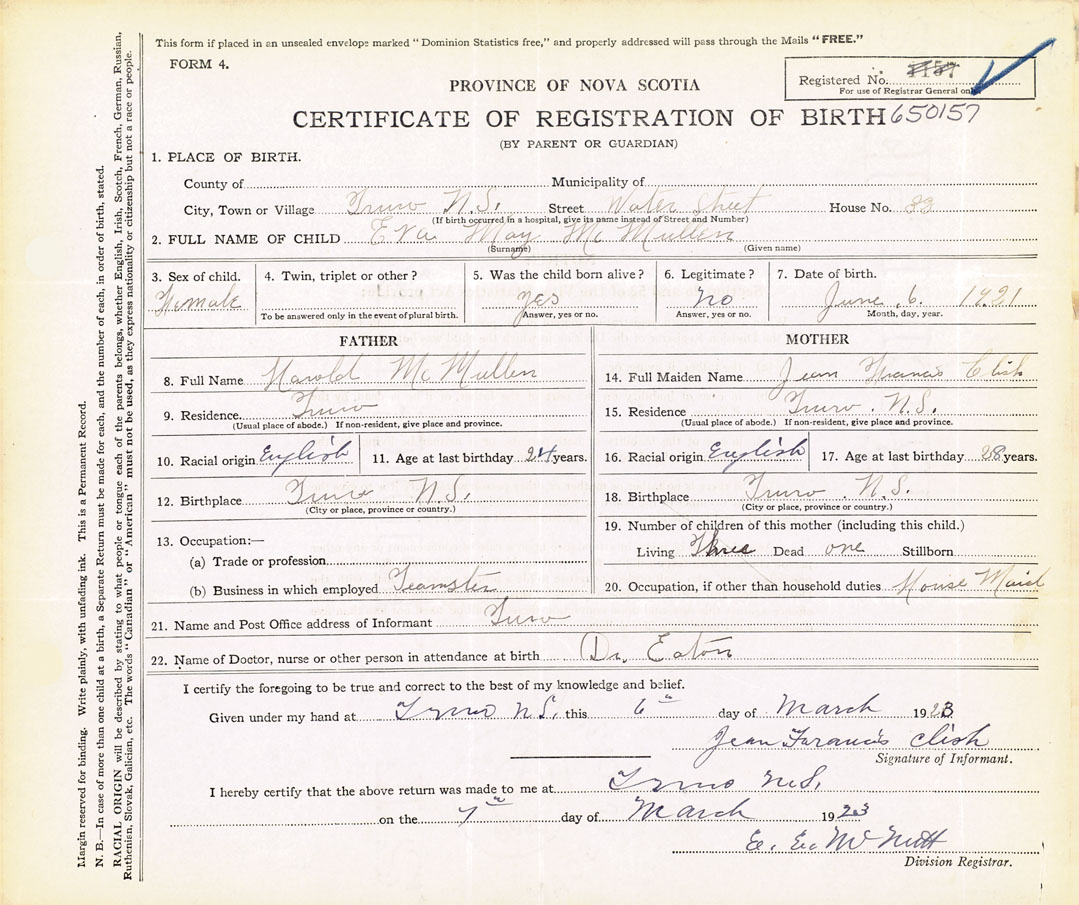 This form if placed in an unsealed envelope marked "Dominion Statistics free," and properly addressed will pass through the Mails "FREE."
FORM 4.
Registered No.
For use of Registrar General only
PROVINCE OF NOVA SCOTIA
CERTIFICATE OF REGISTRATION OF BIRTH 650157
(BY PARENT OR GUARDIAN)
1. PLACE OF BIRTH.
County of Municipality of
City, Town or Village Truro N.S. Street Water Street House No.
(If birth occurred in a hospital, give its name instead of Street and Number)
2. FULL NAME OF CHILD Eva May McMullen
(Surname) (Given name)
3. Sex of child. 4. Twin, triplet or other? 5. Was the child born alive? 6. Legitimate? 7. Date of birth.
Female yes no June 6. 1921
To be answered only in the event of plural birth. Answer, yes or no. Answer, yes or no. Month, day, year.
FATHER MOTHER
8. Full Name Harold McMullen 14. Full Maiden Name Jean Francis Clish
9. Residence. Truro 15. Residence Truro. N.S.
(Usual place of abode.) If non-resident, give place and province. (Usual place of abode.) If non-resident, give place and province.
10. Racial origin English 11. Age at last birthday 24 years. 16. Racial origin English 17. Age at last birthday 28 years.
12. Birthplace Truro N.S. 18. Birthplace Truro. N.S.
(City or place, province or country.) (City or place, province or country.)
13. Occupation:— 19. Number of children of this mother (including this child.)
(a) Trade or profession Living Three Dead one Stillborn
(b) Business in which employed Teamster 20. Occupation, if other than household duties House Maid
21. Name and Post Office address of Informant Truro
22. Name of Doctor, nurse or other person in attendance at birth Dr. Eaton
I certify the foregoing to be true and correct to the best of my knowledge and belief.
Given under my hand at Truro N.S. this 6th day of March 1923
Jean Francis Clish
Signature of Informant.
I hereby certify that the above return was made to me at Truro N.S.
on the 7th day of March 1923
E. E. McNutt
Division Registrar.
Margin reserved for binding. Write plainly, with unfading ink. This is a Permanent Record.
N. B.—In case of more than one child at a birth, a Separate Return must be made for each, and the number of each, in order of birth, stated.
RACIAL ORIGIN will be described by stating to what people or tongue each of the parents belongs, whether English, Irish, Scotch, French, German, Russian,
Ruthenian, Slovak, Galician, etc. The words "Canadian" or "American" must not be used, as they express nationality or citizenship but not a race or people.